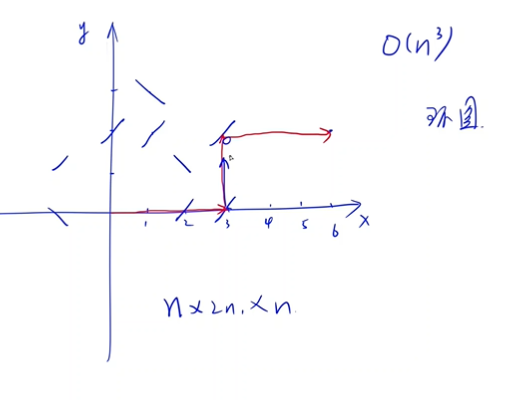 y
O(n³)
环图
1 2 3 4 5 6 x
n×2n×n